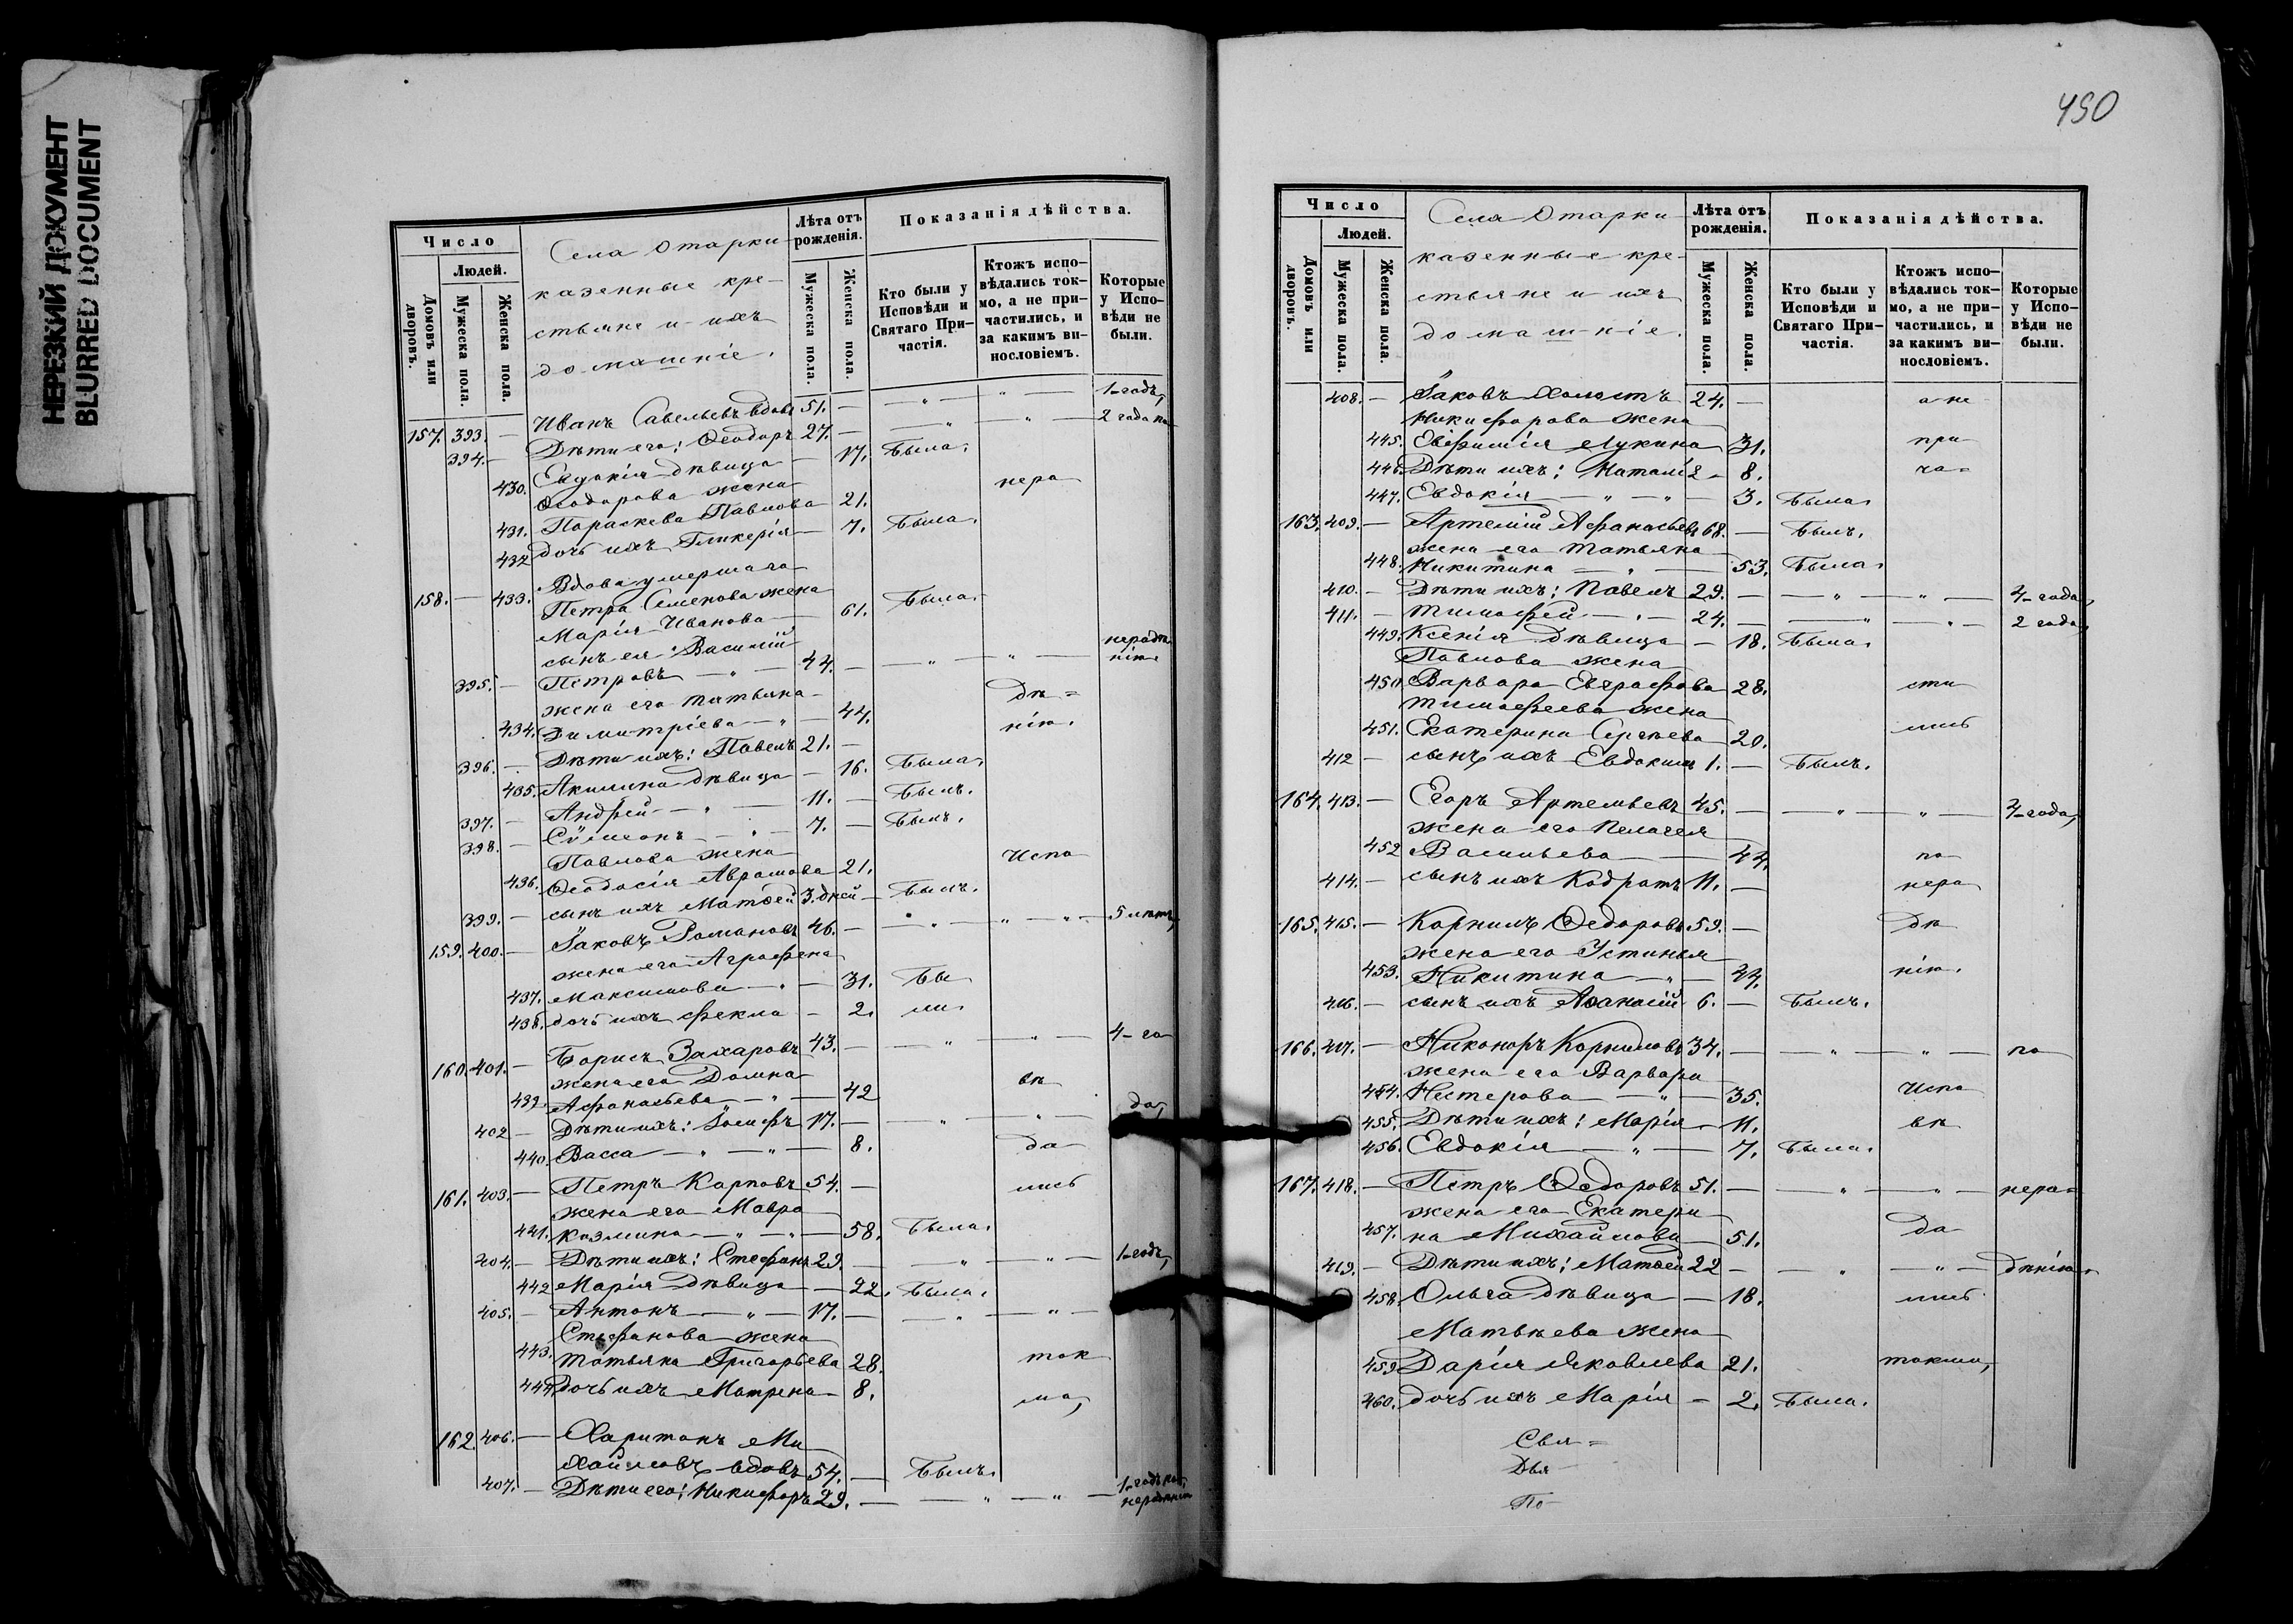 НЕРЕЗКИЙ ДОКУМЕНТ
BLURRED DOCUMENT
Число
Людей.
Домовъ или дворовъ.
Мужеска пола.
Женска пола.
Села Отарки
казенные кре-
стьяне и ихъ
домашніе.
Лѣта отъ рожденія.
Мужеска пола.
Женска пола.
Показанія дѣйства.
Кто были у Исповѣди и Святаго При-частія.
Ктожъ испо-вѣдались ток-мо, а не при-частились, и за какимъ ви-нословіемъ.
Которые у Испо-вѣди не были.
157. 393. — Иванъ Савельевъ вдовъ 51. — — „ — „ — 1-годъ,
394. — Дѣти его: Ѳеодоръ 27. — — „ — „ — 2 года по
430. Евдокія дѣвица — 17. Была.
Ѳеодорова жена
431. Параскева Павлова 21. нера
432 дочь ихъ Гликерія — 7. Была.
158. — 433. Вдова умершаго
Петра Семенова жена
Марія Иванова — 61. Была.
сынъ ея Василій
395. — Петровъ — „ — 44. — — „ — „ — нерадѣ
нію
жена его Татьяна
434. Димитріева — „ — 44. дѣ=
нію.
396. — Дѣти ихъ: Павелъ 21. —
435. Акилина дѣвица — 16. Была.
397. — Андрей — „ — 11. — Былъ.
398. — Сѵмеонъ — „ — 7. — Былъ.
Павлова жена
436. Ѳеодосія Аврамова 21. Испо
399. — сынъ ихъ Матѳей 3. дней — Былъ.
159. 400. — Іаковъ Романовъ 46. — — „ — „ — „ — 5 лѣтъ,
жена его Аграфена
437. Максимова — „ — 31. Бы
438. дочь ихъ Фекла — 2. ли
160. 401. — Борисъ Захаровъ 43. — — „ — „ — 4-го
жена его Домна
439. Афанасьева — „ — 42 вѣ
402 — Дѣти ихъ: Іосифъ 17. — — „ — „ — да,
440. Васса — „ — „ — 8. да
161. 403. — Петръ Карповъ 54. — лись
жена его Мавра
441. Козмина — „ — „ — 58. Была.
404. — Дѣти ихъ: Стефанъ 29. — — „ — „ — 1-годъ,
442 Марія дѣвица — 22. Была.
405. — Антонъ — „ — 17. — — „ — „ —
Стефанова жена
443. Татьяна Григорьева 28. ток
444. дочь ихъ Матрена — 8. мо,
162. 406. — Харитонъ Ми
хайловъ вдовъ 54. — Былъ.
407. — Дѣти его: Никифоръ 29. — — „ — „ — 1-годъ по
нерадѣнію
450
Число
Людей.
Домовъ или дворовъ.
Мужеска пола.
Женска пола.
Села Отарки
казенные кре-
стьяне и ихъ
домашніе.
Лѣта отъ рожденія.
Мужеска пола.
Женска пола.
Показанія дѣйства.
Кто были у Исповѣди и Святаго При-частія.
Ктожъ испо-вѣдались ток-мо, а не при-частились, и за какимъ ви-нословіемъ.
Которые у Испо-вѣди не были.
408. — Іаковъ холостъ 24. — а не
Никифорова жена
445. Евфимія Лукина 31. при
446. Дѣти ихъ: Наталія — 8. ча=
447. Евдокія — „ — „ — 3. Была.
163. 409. — Артемій Афанасьевъ 68. — Былъ.
жена его Татьяна
448. Никитина — „ — 53. Была.
410. — Дѣти ихъ: Павелъ 29. — — „ — „ — 4-года,
411. — Тимофей — „ — 24. — — „ — „ — 2 года,
449. Ксенія дѣвица — 18. Была.
Павлова жена
450. Варвара Евграфова 28. сти
Тимофеева жена
451. Екатерина Сергѣева 20. лись
412 — сынъ ихъ Евдокимъ 1. — Былъ.
164. 413. — Егоръ Артемьевъ 45. — — „ — „ — 4-года,
жена его Пелагея
452 Васильева — 44. по
414. — сынъ ихъ Кодратъ 11. — нера
165. 415. — Корнилъ Ѳедоровъ 59. — дѣ
жена его Устинья
453. Никитина — „ — 44. нію.
416. — сынъ ихъ Аѳанасій 6. — Былъ.
166. 417. — Никоноръ Корниловъ 34. — — „ — „ — по
жена его Варвара
454. Нестерова — „ — 35. Испо
455. Дѣти ихъ: Марія — 11. вѣ
456. Евдокія — „ — 7. Была.
167. 418. — Петръ Ѳедоровъ 51. — — „ — „ — нера=
жена его Екатери
457. на Михайлова 51. да
419. — Дѣти ихъ: Матѳей 22 — — „ — „ — дѣнію.
458. Ольга дѣвица — 18. лись
Матвѣева жена
459 Дарія Яковлева 21. токмо,
460. дочь ихъ Марія — 2. Была.
Свя=
Дья
По